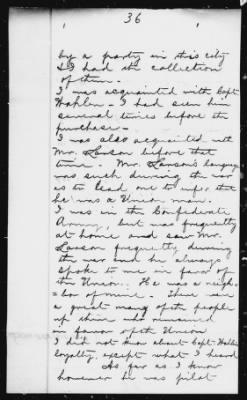 36
by a party in this city
& I had the collection
of them.
I was acquainted with Capt
Wahlen - I had seen him
several times before the
purchase -
I was also acquainted with
Mr. Larson before that
time. Mr. Larson's language
was such during the war
as to lead one to infer that
he was a Union man.
I was in the Confederate
Army, but was frequently
at home and saw Mr.
Larson frequently during
the war and he always
spoke to me in favor of
the Union. He was a neigh
=bor of mine. There were
a great many of the people
up there who remained
in favor of the Union
I did not know about Capt.
loyalty, except what I heard
As far as I know
however he was pilot